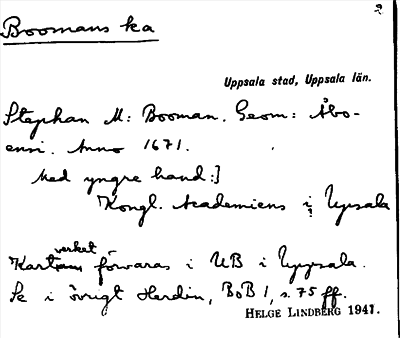 2
Boomans ka
Uppsala stad, Uppsala län.
Stephan M: Booman. Geom: Åbo-
ensi. Anno 1671.
Med yngre hand:]
Kongl. Academiens i Upsala
Kartverket förvaras i UB i Uppsala.
Se i övrigt Herdin, BoB I, s. 75 ff.
HELGE LINDBERG 1941.